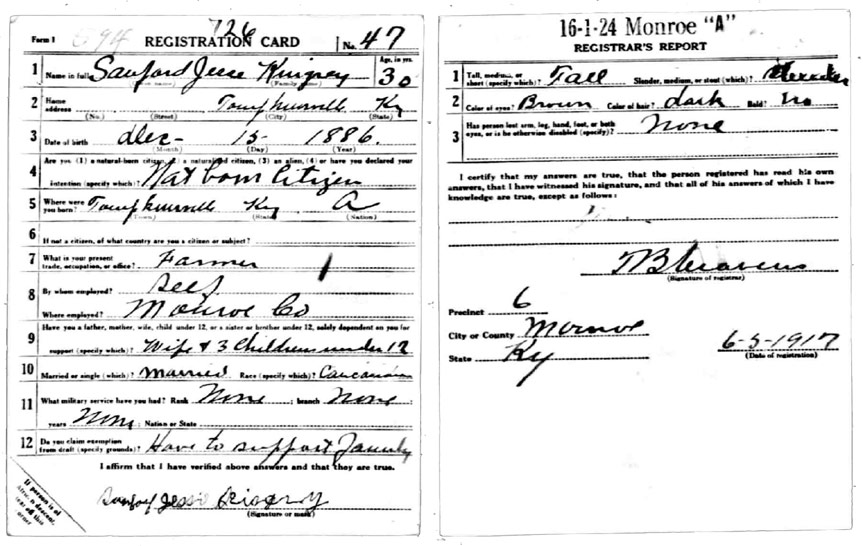 Form 1 726 REGISTRATION CARD No. 47
1 Name in full Sanford Jesse Age, in yrs. 30
(Family name)
2 Home address Ky
(No.) (Street) (City) (State)
3 Date of birth Dec- 15- 1886.
(Month) (Day) (Year)
4 Are you (1) a natural-born citizen, (2) a naturalized citizen, (3) an alien, (4) or have you declared your
intention (specify which)? Nat born Citizen
5 Where were you born? Ky A
(Town) (State) (Nation)
6 If not a citizen, of what country are you a citizen or subject?
7 What is your present trade, occupation, or office? Farmer
8 By whom employed? Self
Where employed? Monroe Co
9 Have you a father, mother, wife, child under 12, or a sister or brother under 12, solely dependent on you for
support (specify which)? Wife & 3 Children under 12
10 Married or single (which)? Married Race (specify which)? Caucasian
11 What military service have you had? Rank None ; branch None ;
years None ; Nation or State
12 Do you claim exemption from draft (specify grounds)? Have to support Family
I affirm that I have verified above answers and that they are true.
(Signature or mark)
If person is of
African descent,
tear off this
corner
16-1-24 Monroe "A"
REGISTRAR'S REPORT
1 Tall, medium, or short (specify which)? Tall Slender, medium, or stout (which)? Slender
2 Color of eyes? Brown Color of hair? dark Bald? no
3 Has person lost arm, leg, hand, foot, or both
eyes, or is he otherwise disabled (specify)? None
I certify that my answers are true, that the person registered has read his own
answers, that I have witnessed his signature, and that all of his answers of which I have
knowledge are true, except as follows:
(Signature of registrar)
Precinct 6
City or County Monroe
State Ky
6-5-1917
(Date of registration)